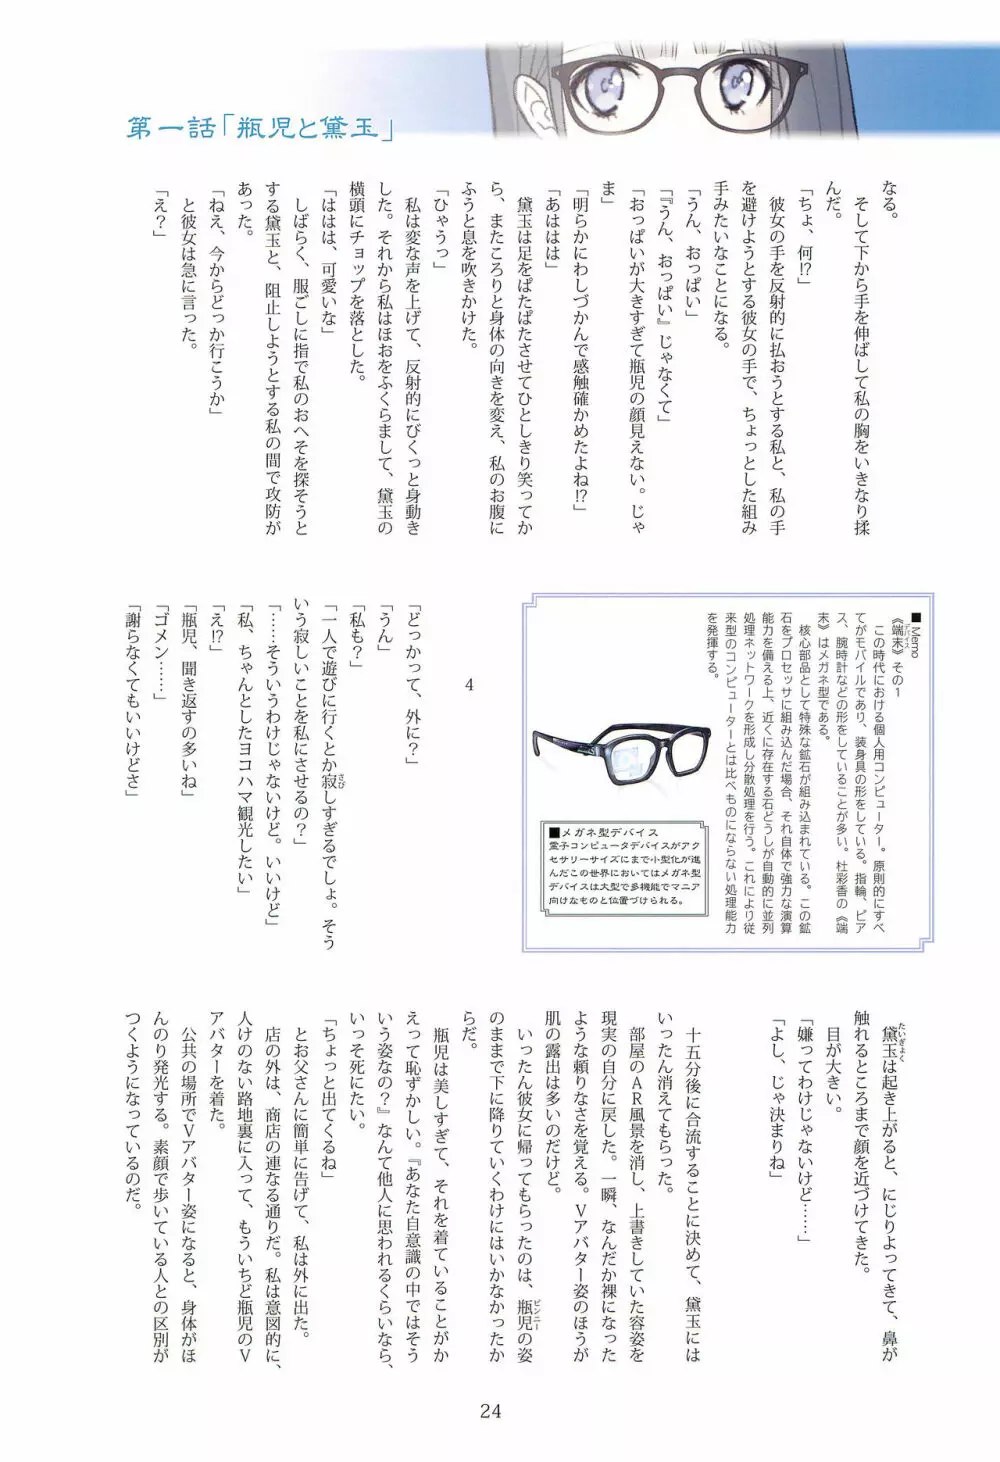 第一話「瓶児と黛玉」
なる。
　そして下から手を伸ばして私の胸をいきなり揉
んだ。
「ちょ、何!?」
　彼女の手を反射的に払おうとする私と、私の手
を避けようとする彼女の手で、ちょっとした組み
手みたいなことになる。
「うん、おっぱい」
「『うん、おっぱい』じゃなくて」
「おっぱいが大きすぎて瓶児の顔見えない。じゃ
ま」
「明らかにわしづかんで感触確かめたよね!?」
「あははは」
　黛玉は足をぱたぱたさせてひとしきり笑ってか
ら、またころりと身体の向きを変え、私のお腹に
ふうと息を吹きかけた。
「ひゃうっ」
　私は変な声を上げて、反射的にびくっと身動き
した。それから私はほおをふくらまして、黛玉の
横頭にチョップを落とした。
「ははは、可愛いな」
　しばらく、服ごしに指で私のおへそを探そうと
する黛玉と、阻止しようとする私の間で攻防が
あった。
「ねえ、今からどっか行こうか」
　と彼女は急に言った。
「え？」
■Memo
《端末》その1
デバイス
　この時代における個人用コンピューター。原則的にすべ
てがモバイルであり、装身具の形をしている。指輪、ピア
ス、腕時計などの形をしていることが多い。杜彩香の《端
末》はメガネ型である。
　核心部品として特殊な鉱石が組み込まれている。この鉱
石をプロセッサに組み込んだ場合、それ自体で強力な演算
能力を備える上、近くに存在する石どうしが自動的に並列
処理ネットワークを形成し分散処理を行う。これにより従
来型のコンピューターとは比べものにならない処理能力
を発揮する。
■メガネ型デバイス
霊子コンピュータデバイスがアク
セサリーサイズにまで小型化が進
んだこの世界においてはメガネ型
デバイスは大型で多機能でマニア
向けなものと位置づけられる。
4
「どっかって、外に？」
「うん」
「私も？」
「一人で遊びに行くとか寂しすぎるでしょ。そう
さび
いう寂しいことを私にさせるの？」
「……そういうわけじゃないけど。いいけど」
「私、ちゃんとしたヨコハマ観光したい」
「え!?」
「瓶児、聞き返すの多いね」
「ゴメン……」
「謝らなくてもいいけどさ」
　黛玉は起き上がると、にじりよってきて、鼻が
たいぎょく
触れるところまで顔を近づけてきた。
　目が大きい。
「嫌ってわけじゃないけど……」
「よし、じゃ決まりね」
　十五分後に合流することに決めて、黛玉には
いったん消えてもらった。
　部屋のＡＲ風景を消し、上書きしていた容姿を
現実の自分に戻した。一瞬、なんだか裸になった
ような頼りなさを覚える。Ｖアバター姿のほうが
肌の露出は多いのだけど。
　いったん彼女に帰ってもらったのは、瓶児の姿
ビンニー
のままで下に降りていくわけにはいかなかったか
らだ。
　瓶児は美しすぎて、それを着ていることがか
えって恥ずかしい。『あなた自意識の中ではそう
いう姿なの？』なんて他人に思われるくらいなら、
いっそ死にたい。
「ちょっと出てくるね」
　とお父さんに簡単に告げて、私は外に出た。
　店の外は、商店の連なる通りだ。私は意図的に、
人けのない路地裏に入って、もういちど瓶児のＶ
アバターを着た。
　公共の場所でＶアバター姿になると、身体がほ
んのり発光する。素顔で歩いている人との区別が
つくようになっているのだ。
24